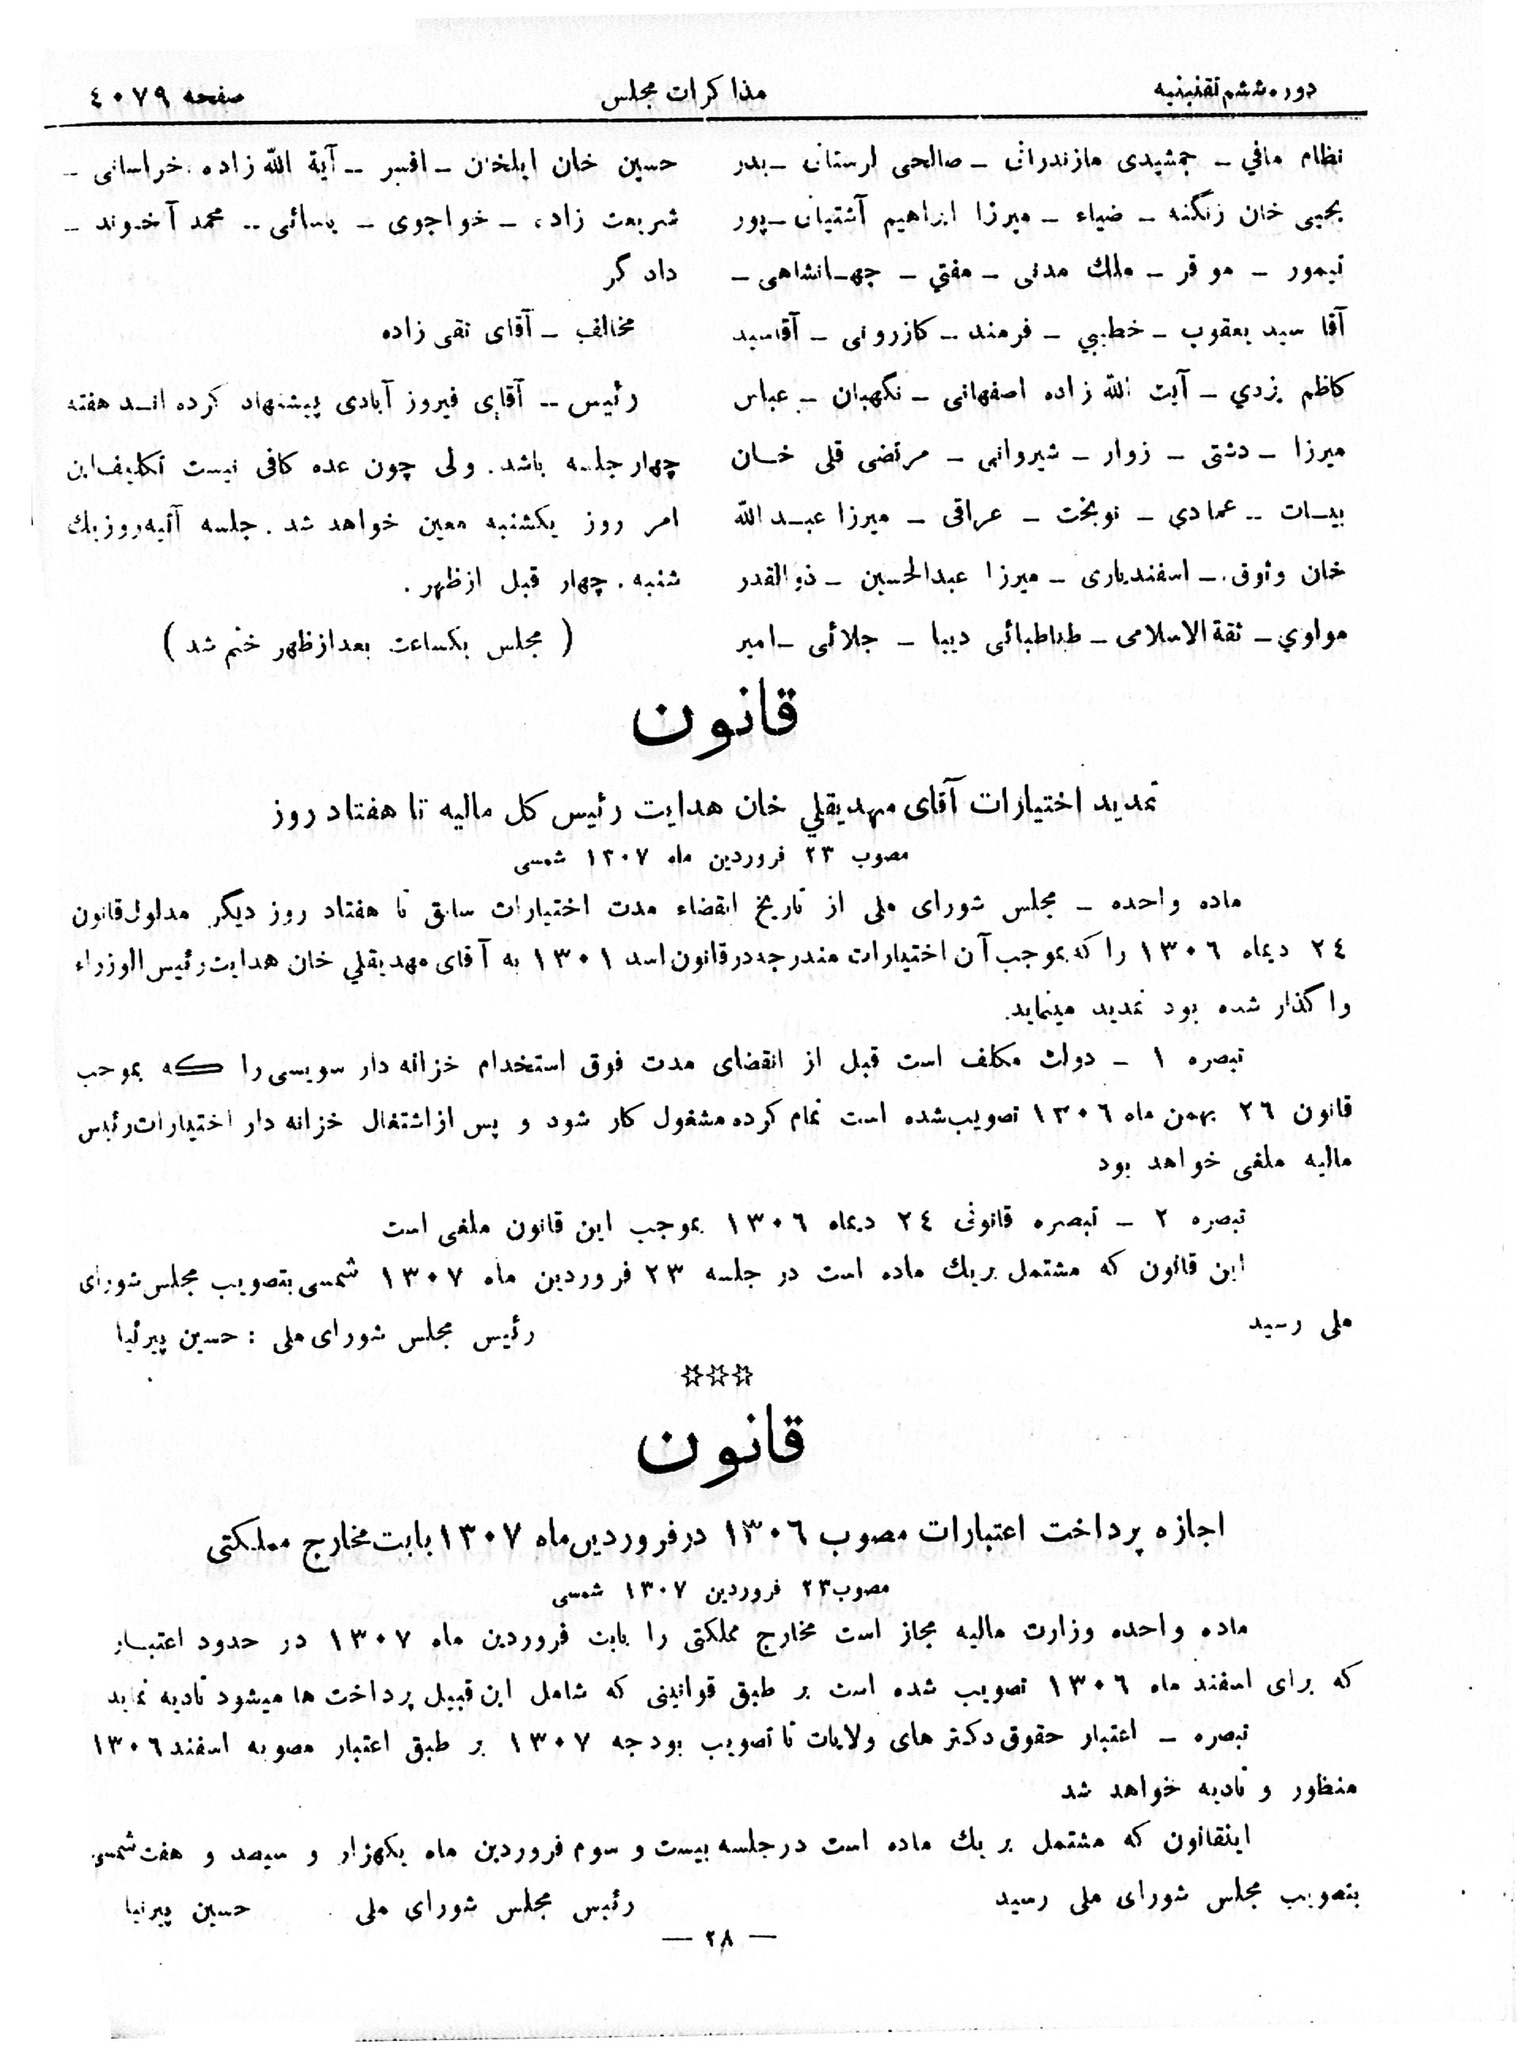 دوره ششم تقنینیه
مذاکرات مجلس
صفحه ٤٠٧٩
نظام مافی ـ جمشیدی مازندرانی ـ صالحی لرستانی ـ بدر
یحیی خان زنگنه ـ ضیاء ـ میرزا ابراهیم آشتیانی ـ پور
تیمور ـ موقر ـ ملك مدنی ـ مفتی ـ جهـانشاهی ـ
آقا سید یعقوب ـ خطیبی ـ فرمند ـ کازرونی ـ آقاسید
کاظم یزدی ـ آیت الله زاده اصفهانی ـ نگهبان ـ عباس
میرزا ـ دشتی ـ زوار ـ شیروانی ـ مرتضی قلی خـان
بیـات ـ عمادی ـ نوبخت ـ عراقی ـ میرزا عبـدالله
خان وثوق ـ اسفندیاری ـ میرزا عبدالحسین ـ ذوالقدر
مولوی ـ ثقةالاسلامی ـ طباطبائی دیبا ـ جلائی ـ امیر
حسین خان ایلخان ـ افسر ـ آیة الله زاده خراسانی ـ
شریعت زاده ـ خواجوی ـ یاسائی ـ محمد آخوند ـ
دادگر
مخالف ـ آقای تقی زاده
رئیس ـ آقای فیروز آبادی پیشنهاد کرده انـد هفته
چهار جلسه باشد. ولی چون عده کافی نیست تکلیف این
امر روز یکشنبه معین خواهد شد. جلسه آتیه روز یك
شنبه. چهار قبل ازظهر.
( مجلس یکساعت بعد ازظهر ختم شد )
قانون
تمدید اختیارات آقای مهدیقلی خان هدایت رئیس کل مالیه تا هفتاد روز
مصوب ٢٣ فروردین ماه ١٣٠٧ شمسی
ماده واحده ـ مجلس شورای ملی از تاریخ انقضاء مدت اختیارات سابق تا هفتاد روز دیگر مدلول قانون
٢٤ دیماه ١٣٠٦ را که بموجب آن اختیارات مندرجه در قانون اسد ١٣٠١ به آقای مهدیقلی خان هدایت رئیس الوزراء
واگذار شده بود تمدید مینماید.
تبصره ١ ـ دولت مکلف است قبل از انقضای مدت فوق استخدام خزانه دار سویسی را که بموجب
قانون ٢٦ بهمن ماه ١٣٠٦ تصویب شده است تمام کرده مشغول کار شود و پس از اشتغال خزانه دار اختیارات رئیس
مالیه ملغی خواهد بود
تبصره ٢ ـ تبصره قانونی ٢٤ دیماه ١٣٠٦ بموجب این قانون ملغی است
این قانون که مشتمل بریك ماده است در جلسه ٢٣ فروردین ماه ١٣٠٧ شمسی بتصویب مجلس شورای
ملی رسید
رئیس مجلس شورای ملی : حسین پیرنیا
☆☆☆
قانون
اجازه پرداخت اعتبارات مصوب ١٣٠٦ در فروردین ماه ١٣٠٧ بابت مخارج مملکتی
مصوب ٢٣ فروردین ١٣٠٧ شمسی
ماده واحده وزارت مالیه مجاز است مخارج مملکتی را بابت فروردین ماه ١٣٠٧ در حدود اعتبـار
که برای اسفند ماه ١٣٠٦ تصویب شده است بر طبق قوانینی که شامل این قبیل پرداخت ها میشود تادیه نماید
تبصره ـ اعتبار حقوق دکتر های ولایات تا تصویب بودجه ١٣٠٧ بر طبق اعتبار مصوبه اسفند ١٣٠٦
منظور و تادیه خواهد شد
اینقانون که مشتمل بر یك ماده است در جلسه بیست و سوم فروردین ماه یکهزار و سیصد و هفت شمسی
بتصویب مجلس شورای ملی رسید
رئیس مجلس شورای ملی
حسین پیرنیا
— ٢٨ —